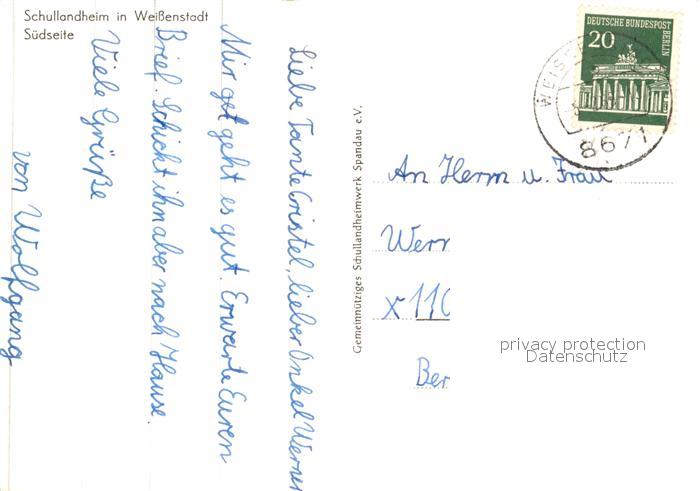 Schullandheim in Weißenstadt
Südseite
Liebe Tante Cristel, lieber Onkel Werner
Mir get geht es gut. Erwarte Euren
Brief. Schickt ihn aber nach Hause.
Viele Grüße
von Wolfgang
Gemeinnütziges Schullandheimwerk Spandau e.V.
DEUTSCHE BUNDESPOST
BERLIN
20
8671
An Herrn u. Frau
Werr
x 110
Ber
privacy protection
Datenschutz